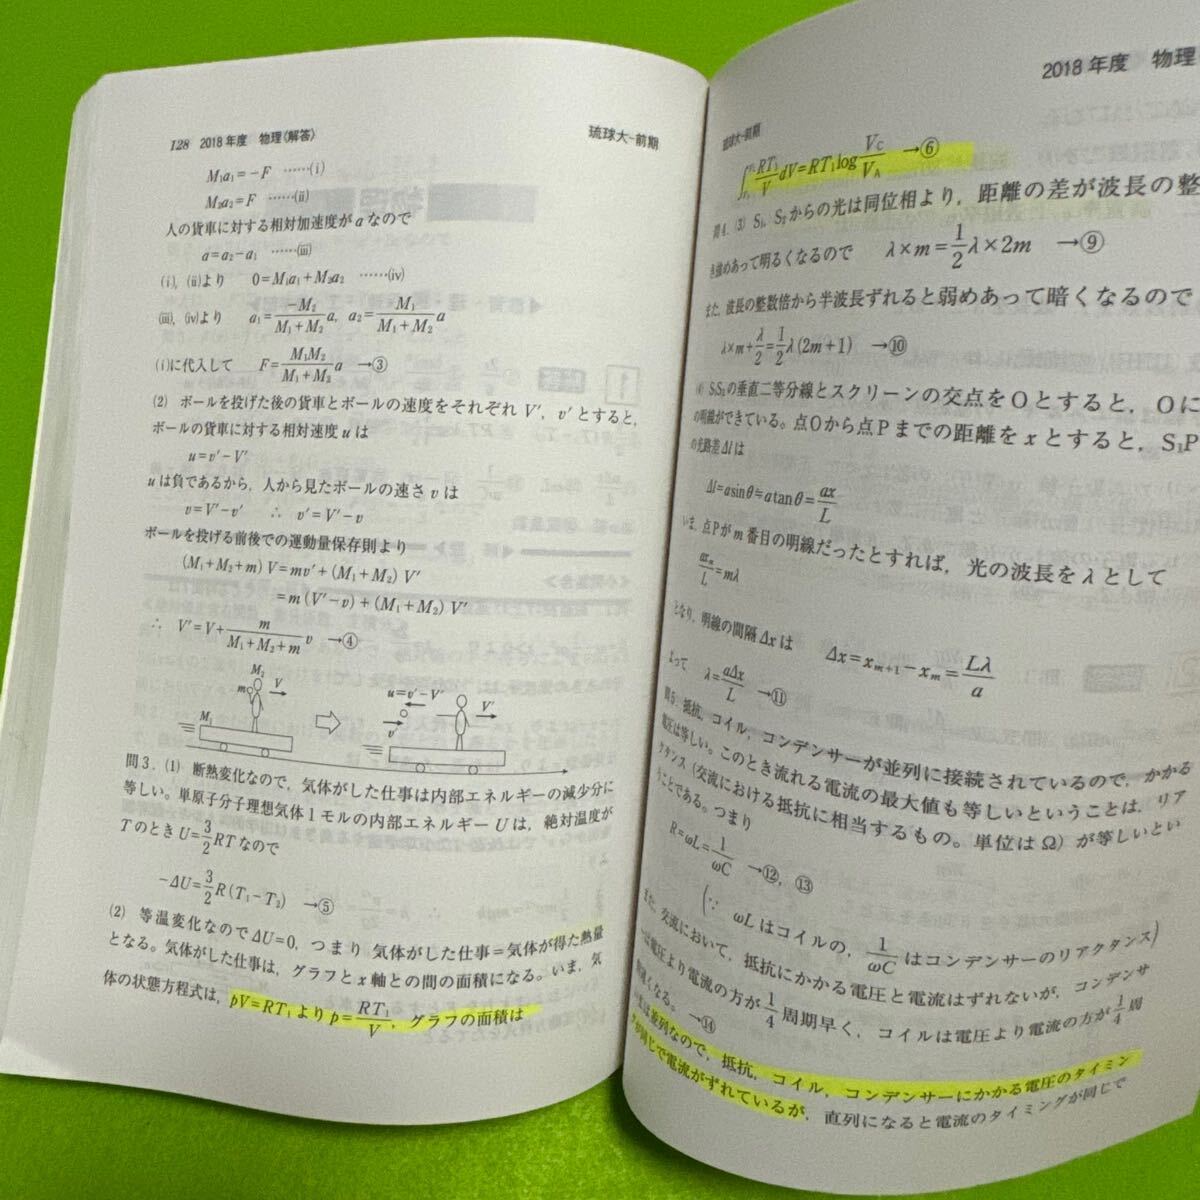 128 2018年度 物理〈解答〉 琉球大-前期
M₁a₁=-F ……(i)
M₂a₂=F ……(ii)
人の貨車に対する相対加速度がaなので
a=a₂-a₁ ……(iii)
(i), (ii)より 0=M₁a₁+M₂a₂ ……(iv)
(iii), (iv)より a₁=-M₂/(M₁+M₂) a, a₂=M₁/(M₁+M₂) a
(i)に代入して F=M₁M₂/(M₁+M₂) a →③
(2) ボールを投げた後の貨車とボールの速度をそれぞれV′, v′とすると,
ボールの貨車に対する相対速度uは
u=v′-V′
uは負であるから, 人から見たボールの速さvは
v=V′-v′ ∴ v′=V′-v
ボールを投げる前後での運動量保存則より
(M₁+M₂+m)V=mv′+(M₁+M₂)V′
=m(V′-v)+(M₁+M₂)V′
∴ V′=V+m/(M₁+M₂+m) v →④
M₂
m V
M₁
u=v′-V′
V′
v′
問3. (1) 断熱変化なので, 気体がした仕事は内部エネルギーの減少分に
等しい。単原子分子理想気体1モルの内部エネルギーUは, 絶対温度が
TのときU=3/2 RTなので
-ΔU=3/2 R(T₁-T₂) →⑤
(2) 等温変化なのでΔU=0, つまり 気体がした仕事=気体が得た熱量
となる。気体がした仕事は, グラフとx軸との間の面積になる。いま, 気
体の状態方程式は, pV=RT₁よりp=RT₁/V, グラフの面積は
2018年度 物理
琉球大-前期
∫ RT₁/V dV=RT₁log V_C/V_A →⑥
問4. (3) S₁, S₂からの光は同位相より, 距離の差が波長の整
き強めあって明るくなるので λ×m=1/2 λ×2m →⑨
また, 波長の整数倍から半波長ずれると弱めあって暗くなるので
λ×m+λ/2=1/2 λ(2m+1) →⑩
(4) S₁S₂の垂直二等分線とスクリーンの交点をOとすると, Oに
の明線ができている。点Oから点Pまでの距離をxとすると, S₁P
の光路差Δlは
Δl=asinθ≒atanθ=ax/L
いま, 点Pがm番目の明線だったとすれば, 光の波長をλとして
axₘ/L=mλ
となり, 明線の間隔Δxは Δx=xₘ₊₁-xₘ=Lλ/a
よって λ=aΔx/L →⑪
問5. 抵抗, コイル, コンデンサーが並列に接続されているので, かかる
電圧は等しい。このとき流れる電流の最大値も等しいということは, リア
クタンス(交流における抵抗に相当するもの。単位はΩ)が等しいとい
うことである。つまり
R=ωL=1/ωC →⑫, ⑬
(∵ ωLはコイルの, 1/ωCはコンデンサーのリアクタンス)
また, 交流において, 抵抗にかかる電圧と電流はずれないが, コンデンサ
ーは電圧より電流の方が1/4周期早く, コイルは電圧より電流の方が1/4周
期遅くなる。 →⑭
並列なので, 抵抗, コイル, コンデンサーにかかる電圧のタイミン
グが同じで電流がずれているが, 直列になると電流のタイミングが同じで